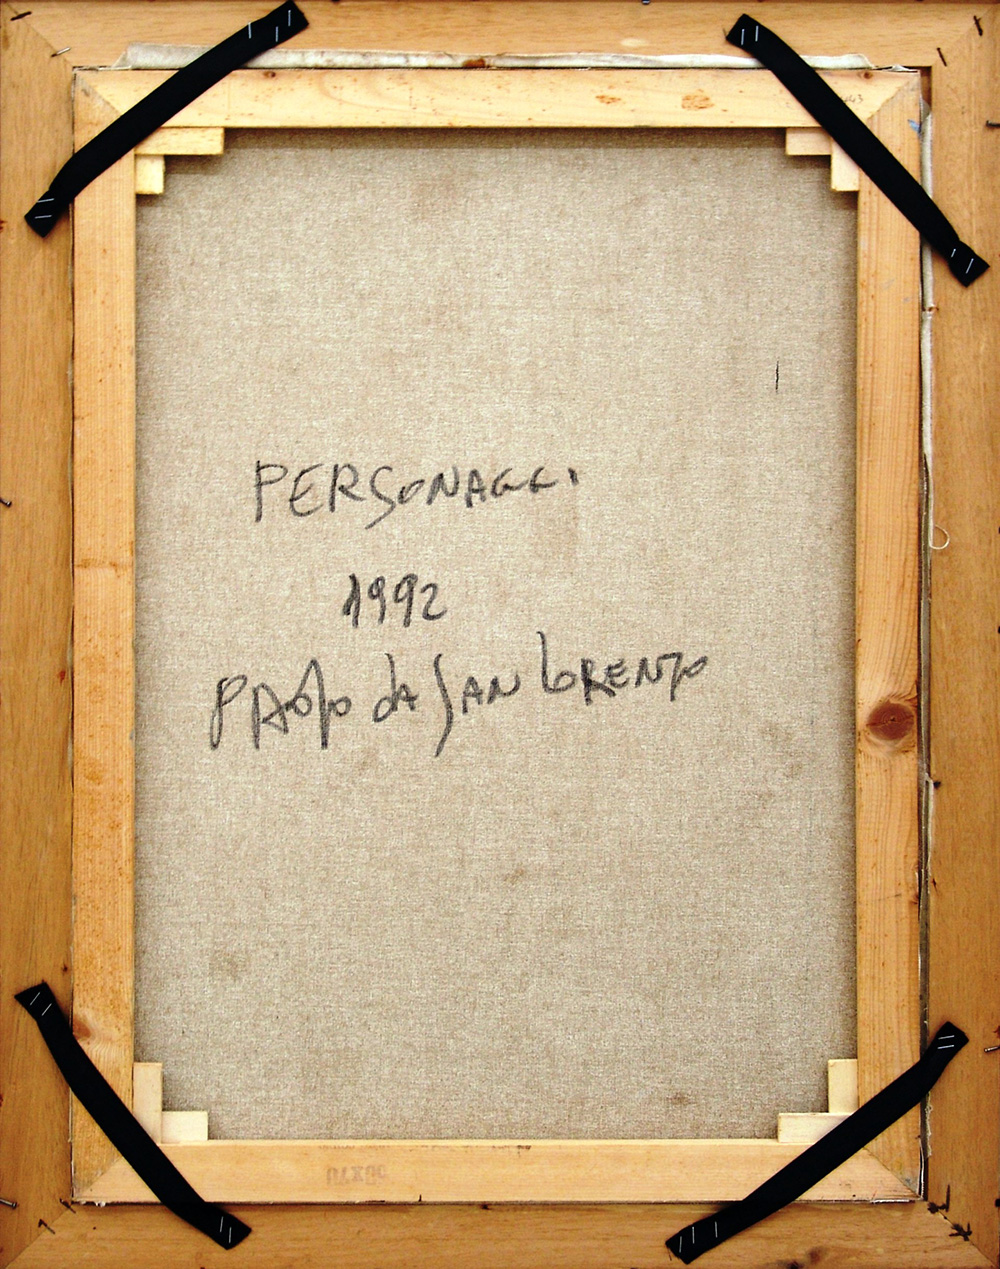 PERSONAGGI
1992
PAOLO dA SAN LORENZO